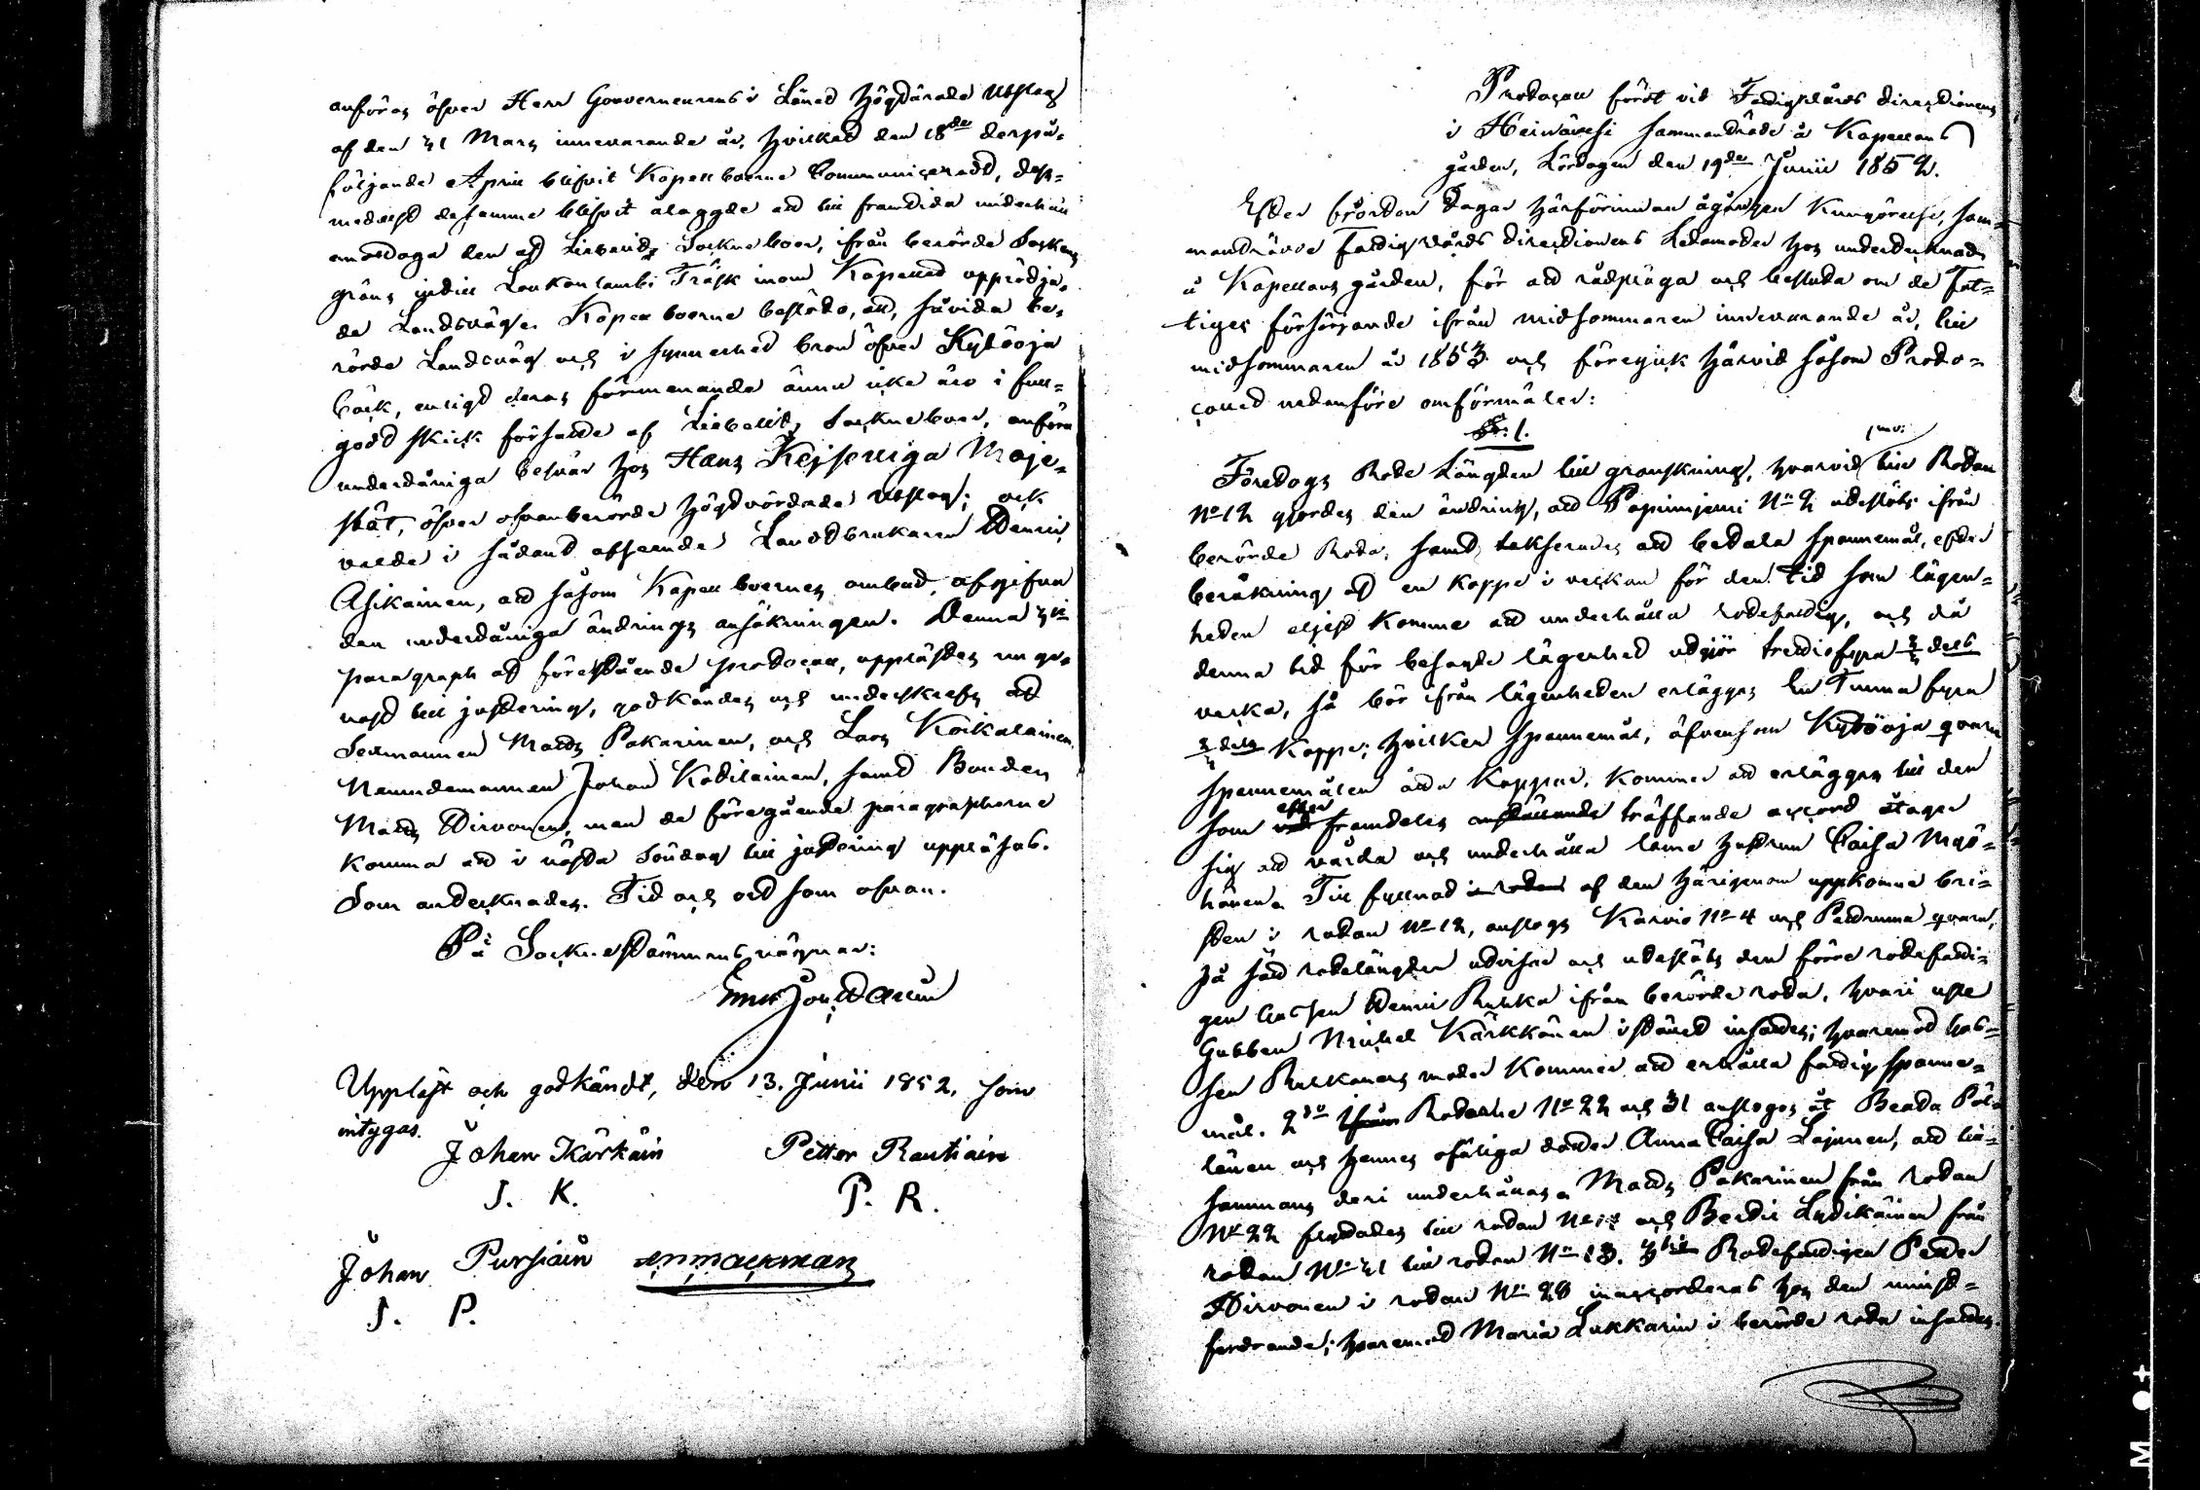 anföras öfver Herr Gouverneurens i Länet högtärade Utslag
af den 31 Mars innevarande år, hvilket den 18de derpå-
följande April blifvit Kapellboerne Communiceradt, der-
medelst desamme blifvit ålaggde att till framtida underhåll
emottaga den af Libelits Sockneboer, ifrån berörde Sockens
gräns intill Laukanlambi Träsk inom Kapellet upprödja-
de Landsväg. Kapellboerne beslöto, att, såvida be-
rörde Landsväg och i synnerhet bron öfver Kylöoja
bäck, enligt deras förmenande ännu icke äro i full-
godt skick försatte af Libelits Sockneboer, anföra
underdåniga besvär hos Hans Kejserliga Maje-
stät, öfver ofvanberörde högtvördade Utslag; ock
valde i sådant afseende Landtbrukaren Henric
Asikainen, att såsom Kapellboernes ombud, afgifva
den underdåniga ändrings ansökningen. Denna 3die
paragraph af föreståande protocoll, upplästes nu ge-
nast till justering, godkändes och underskrefs af
Sexmannen Matts Pakarinen, och Lars Koikalainen,
Nämndemannen Johan Kotilainen, samt Bonden
Matts Hirvonen, men de föregående paragrapherne
komma att i nästa Söndag till justering uppläsas.
Som antecknades. Tid och ort som ofvan.
På Sockenstämmans vägnar:
Uppläst och godkändt, den 13. Junii 1852, som
intygas.
Johan Kärkäin Petter Rautiain
J. K. P. R.
Johan Pursiain
J. P.
Protocoll fördt vid Fattigvårds directionens
i Heinävesi sammanträde å Kapellans
gården, Lördagen den 19de Junii 1852.
Efter fjorton dagar härförinnan ågången Kungörelse, sam-
manträdde Fattigvårds directionens Ledamöter hos undertecknad
å Kapellans gården, för att rådpläga och besluta om de Fat-
tiges försörjande ifrån midsommaren innevarande år, till
midsommaren år 1853 och föregick härvid såsom Proto-
collet nedanföre omförmäler:
§: 1.
Företogs Rote Längden till granskning, hvarvid 1mo: till Rotan
No 12 gjordes den ändring, att Papinniemi No 2 uteslöts ifrån
berörde Rota, samt taxerades att betala spannemål, efter
beräkning af en kappe i veckan för den tid som lägen-
heten eljest komme att underhålla rotefattig, och då
denna tid för besagde lägenhet utgör trettiofyra 2/3 dels
vecka, så bör ifrån lägenheten erläggas En Tunna fyra
2/3 dels Kappe; hvilken spannemål, äfvensom Kylöoja qvarn
spannemålen åtta Kappar, kommer att erläggas till den
som efter framdeles träffande accord åtager
sig att vårda och underhålla lame hustrun Caisa Myö-
hänen. Till fyllnad af den härigenom uppkomne bri-
sten i rotan No 12, anslogs Karvio No 4 och Pettrumma qvarn,
på sätt rotelängden utvisar och uteslöts den förre rotefatti-
gen Henric Ruhka ifrån berörde rota, hvari uste
Gubben Michel Kärkkäinen i stället insattes; hvaremot
Ruhkanens moder kommer att erhålla fattig spanne-
mål. 2do Rotarne No 22 och 31 anslogos åt Beata Pöl-
länen och hennes ofärliga dotter Anna Caisa Lajunen, att till-
sammans deri underhållas. Matts Pakarinen från rotan
No 22 flyttades till rotan No 17 och Bertil Lyytikäinen från
rotan No 31 till rotan No 13. 3tio Rotefattigen Petter
Hirvonen i rotan No 28 inaccorderas hos den minst-
fordrande; hvaremot Maria Lukkarin i berörde rota insattes.